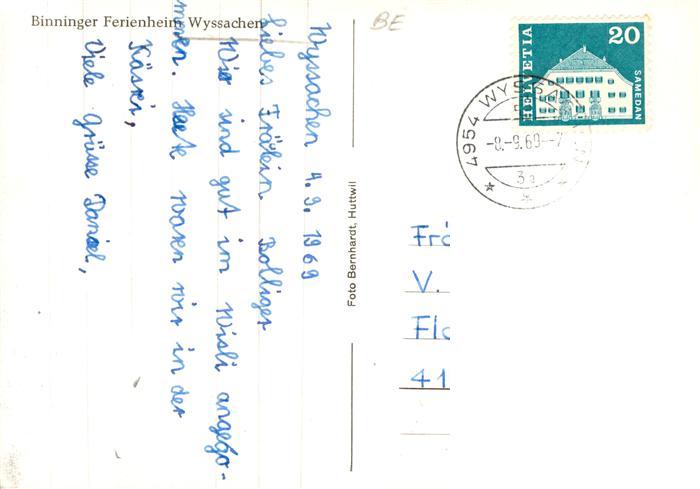 Binninger Ferienheim Wyssachen
BE
Wyssachen 4.9.1969
Liebes Fräulein Bolliger
Wir sind gut im Wisli angego-
men. Heute waren wir in der
Käseri,
Viele Grüsse Daniel,
Foto Bernhardt, Huttwil
HELVETIA
20
SAMEDAN
4954 WYSSA
-8.-9.69--7
3a
Frä
V.
Flo
41